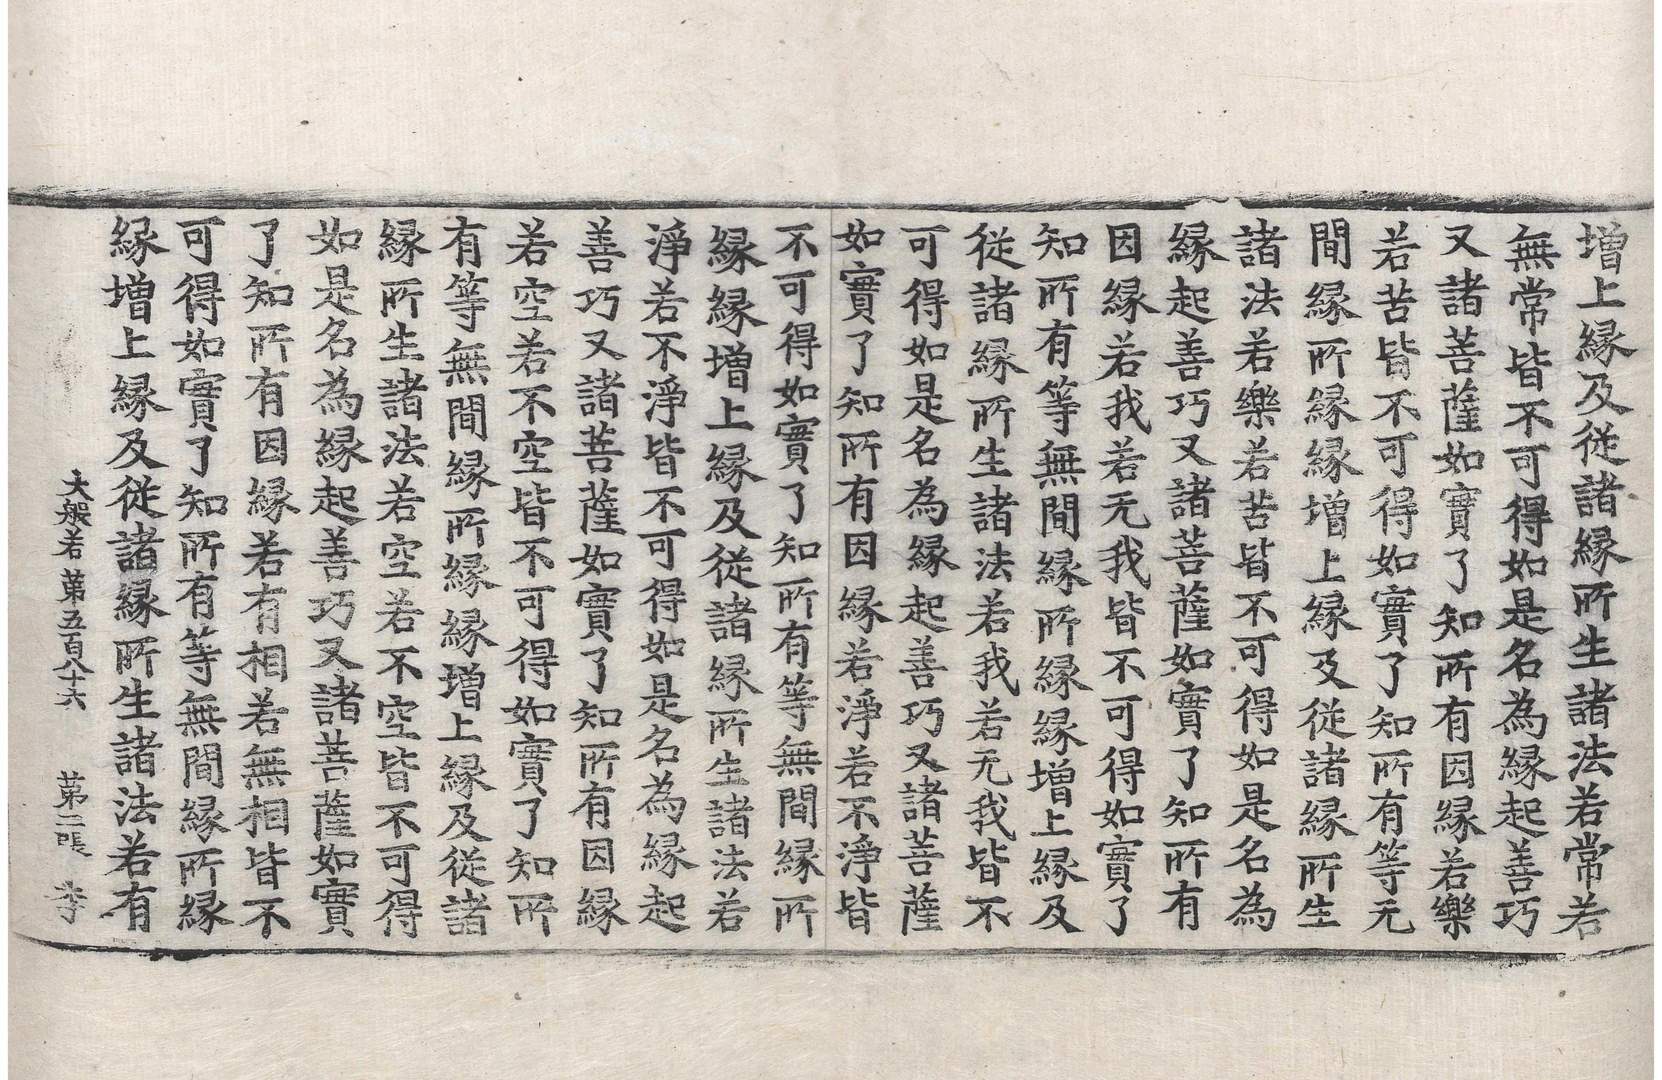 增上縁及從諸縁所生諸法若常若
無常皆不可得如是名為縁起善巧
又諸菩薩如實了知所有因縁若樂
若苦皆不可得如實了知所有等无
間縁所縁縁增上縁及從諸縁所生
諸法若樂若苦皆不可得如是名為
縁起善巧又諸菩薩如實了知所有
因縁若我若无我皆不可得如實了
知所有等無間縁所縁縁增上縁及
從諸縁所生諸法若我若无我皆不
可得如是名為縁起善巧又諸菩薩
如實了知所有因縁若淨若不淨皆
不可得如實了知所有等無間縁所
縁縁增上縁及從諸縁所生諸法若
淨若不淨皆不可得如是名為縁起
善巧又諸菩薩如實了知所有因縁
若空若不空皆不可得如實了知所
有等無間縁所縁縁增上縁及從諸
縁所生諸法若空若不空皆不可得
如是名為縁起善巧又諸菩薩如實
了知所有因縁若有相若無相皆不
可得如實了知所有等無間縁所縁
縁增上縁及從諸縁所生諸法若有
大般若第五百八十六 第二張 李